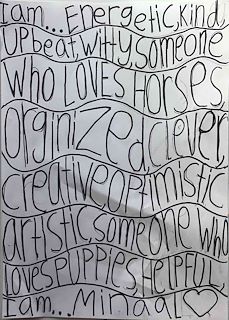 I am... Energetic, kind,
upbeat, witty, someone
who LOVES Horses,
orginized, clever,
creative, optimistic
artistic, someone who
loves puppies, HeLPFUL,
I am... Minaal